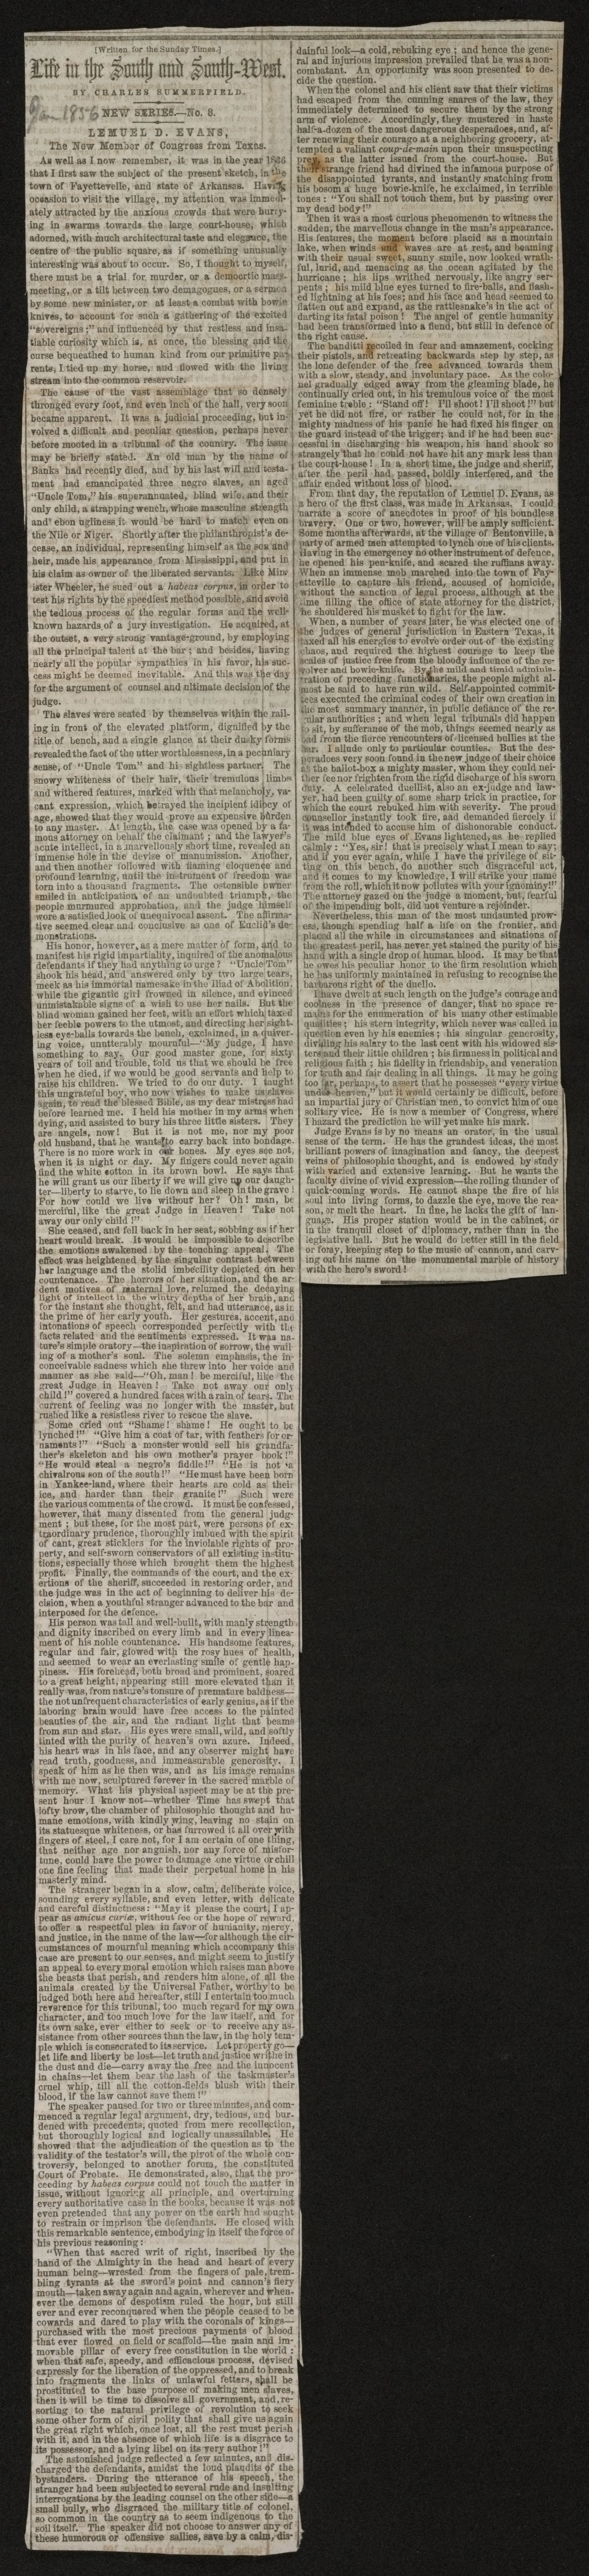 [Written for the Sunday Times.]
Life in the South and South-West.
BY CHARLES SUMMERFIELD.
Jan 1856
NEW SERIES—No. 8.
LEMUEL D. EVANS,
The New Member of Congress from Texas.
As well as I now remember, it was in the year 1836
that I first saw the subject of the present sketch, in the
town of Fayetteville, and state of Arkansas. Having
occasion to visit the village, my attention was immedi-
ately attracted by the anxious crowds that were hurry-
ing in swarms towards the large court-house, which
adorned, with much architectural taste and elegance, the
centre of the public square, as if something unusually
interesting was about to occur. So, I thought to myself,
there must be a trial for murder, or a democratic mass-
meeting, or a tilt between two demagogues, or a sermon
by some new minister, or at least a combat with bowie
knives, to account for such a gathering of the excited
"sovereigns;" and influenced by that restless and insa-
tiable curiosity which is, at once, the blessing and the
curse bequeathed to human kind from our primitive pa-
rents, I tied up my horse, and flowed with the living
stream into the common reservoir.
The cause of the vast assemblage that so densely
thronged every foot, and even inch of the hall, very soon
became apparent. It was a judicial proceeding, but in-
volved a difficult and peculiar question, perhaps never
before mooted in a tribunal of the country. The issue
may be briefly stated. An old man by the name of
Banks had recently died, and by his last will and testa-
ment had emancipated three negro slaves, an aged
"Uncle Tom," his superannuated, blind wife, and their
only child, a strapping wench, whose masculine strength
and ebon ugliness it would be hard to match even on
the Nile or Niger. Shortly after the philanthropist's de-
cease, an individual, representing himself as the son and
heir, made his appearance from Mississippi, and put in
his claim as owner of the liberated servants. Like Min-
ister Wheeler, he sued out a habeas corpus, in order to
test his rights by the speediest method possible, and avoid
the tedious process of the regular forms and the well-
known hazards of a jury investigation. He acquired, at
the outset, a very strong vantage-ground, by employing
all the principal talent at the bar; and besides, having
nearly all the popular sympathies in his favor, his suc-
cess might be deemed inevitable. And this was the day
for the argument of counsel and ultimate decision of the
judge.
The slaves were seated by themselves within the rail-
ing in front of the elevated platform, dignified by the
title of bench, and a single glance at their dusky forms
revealed the fact of the utter worthlessness, in a pecuniary
sense, of "Uncle Tom" and his sightless partner. The
snowy whiteness of their hair, their tremulous limbs
and withered features, marked with that melancholy, va-
cant expression, which betrayed the incipient idiocy of
age, showed that they would prove an expensive burden
to any master. At length, the case was opened by a fa-
mous attorney on behalf the claimant; and the lawyer's
acute intellect, in a marvellously short time, revealed an
immense hole in the devise of manumission. Another,
and then another followed with flaming eloquence and
profound learning, until the instrument of freedom was
torn into a thousand fragments. The ostensible owner
smiled in anticipation of an undoubted triumph, the
people murmured approbation, and the judge himself
wore a satisfied look of unequivocal assent. The affirma-
tive seemed clear and conclusive as one of Euclid's de-
monstrations.
His honor, however, as a mere matter of form, and to
manifest his rigid impartiality, inquired of the anomalous
defendants if they had anything to urge? "Uncle Tom"
shook his head, and answered only by two large tears,
meek as his immortal namesake in the Iliad of Abolition,
while the gigantic girl frowned in silence, and evinced
unmistakable signs of a wish to use her nails. But the
blind woman gained her feet, with an effort which taxed
her feeble powers to the utmost, and directing her sight-
less eye-balls towards the bench, exclaimed, in a quiver-
ing voice, unutterably mournful—"My judge, I have
something to say. Our good master gone, for sixty
years of toil and trouble, told us that we should be free
when he died, if we would be good servants and help to
raise his children. We tried to do our duty. I taught
this ungrateful boy, who now wishes to make us slaves
again, to read the blessed Bible, as my dear mistress had
before learned me. I held his mother in my arms when
dying, and assisted to bury his three little sisters. They
are angels, now! But it is not me, nor my poor
old husband, that he wants to carry back into bondage.
There is no more work in our bones. My eyes see not,
when it is night or day. My fingers could never again
find the white cotton in its brown bowl. He says that
he will grant us our liberty if we will give up our daugh-
ter—liberty to starve, to lie down and sleep in the grave!
For how could we live without her? Oh! man, be
merciful, like the great Judge in Heaven! Take not
away our only child!"
She ceased, and fell back in her seat, sobbing as if her
heart would break. It would be impossible to describe
the emotions awakened by the touching appeal. The
effect was heightened by the singular contrast between
her language and the stolid imbecility depicted on her
countenance. The horrors of her situation, and the ar-
dent motives of maternal love, relumed the decaying
light of intellect in the wintry depths of her brain, and
for the instant she thought, felt, and had utterance, as in
the prime of her early youth. Her gestures, accent, and
intonations of speech corresponded perfectly with the
facts related and the sentiments expressed. It was na-
ture's simple oratory—the inspiration of sorrow, the wail-
ing of a mother's soul. The solemn emphasis, the in-
conceivable sadness which she threw into her voice and
manner as she said—"Oh, man! be merciful, like the
great Judge in Heaven! Take not away our only
child!" covered a hundred faces with a rain of tears. The
current of feeling was no longer with the master, but
rushed like a resistless river to rescue the slave.
Some cried out "Shame! shame! He ought to be
lynched!" "Give him a coat of tar, with feathers for or-
naments!" "Such a monster would sell his grandfa-
ther's skeleton and his own mother's prayer book!"
"He would steal a negro's fiddle!" "He is not a
chivalrous son of the south!" "He must have been born
in Yankee-land, where their hearts are cold as their
ice, and harder than their granite!" Such were
the various comments of the crowd. It must be confessed,
however, that many dissented from the general judg-
ment; but these, for the most part, were persons of ex-
traordinary prudence, thoroughly imbued with the spirit
of cant, great sticklers for the inviolable rights of pro-
perty, and self-sworn conservators of all existing institu-
tions, especially those which brought them the highest
profit. Finally, the commands of the court, and the ex-
ertions of the sheriff, succeeded in restoring order, and
the judge was in the act of beginning to deliver his de-
cision, when a youthful stranger advanced to the bar and
interposed for the defence.
His person was tall and well-built, with manly strength
and dignity inscribed on every limb and in every linea-
ment of his noble countenance. His handsome features,
regular and fair, glowed with the rosy hues of health,
and seemed to wear an everlasting smile of gentle hap-
piness. His forehead, both broad and prominent, soared
to a great height, appearing still more elevated than it
really was, from nature's tonsure of premature baldness—
the not unfrequent characteristics of early genius, as if the
laboring brain would have free access to the painted
beauties of the air, and the radiant light that beams
from sun and star. His eyes were small, wild, and softly
tinted with the purity of heaven's own azure. Indeed,
his heart was in his face, and any observer might have
read truth, goodness, and immeasurable generosity. I
speak of him as he then was, and as his image remains
with me now, sculptured forever in the sacred marble of
memory. What his physical aspect may be at the pre-
sent hour I know not—whether Time has swept that
lofty brow, the chamber of philosophic thought and hu-
mane emotions, with kindly wing, leaving no stain on
its statuesque whiteness, or has furrowed it all over with
fingers of steel, I care not, for I am certain of one thing,
that neither age nor anguish, nor any force of misfor-
tune, could have the power to damage one virtue or chill
one fine feeling that made their perpetual home in his
masterly mind.
The stranger began in a slow, calm, deliberate voice,
sounding every syllable, and even letter, with delicate
and careful distinctness: "May it please the court, I ap-
pear as amicus curiæ, without fee or the hope of reward,
to offer a respectful plea in favor of humanity, mercy,
and justice, in the name of the law—for although the cir-
cumstances of mournful meaning which accompany this
case are present to our senses, and might seem to justify
an appeal to every moral emotion which raises man above
the beasts that perish, and renders him alone, of all the
animals created by the Universal Father, worthy to be
judged both here and hereafter, still I entertain too much
reverence for this tribunal, too much regard for my own
character, and too much love for the law itself, and for
its own sake, ever either to seek or to receive any as-
sistance from other sources than the law, in the holy tem-
ple which is consecrated to its service. Let property go—
let life and liberty be lost—let truth and justice writhe in
the dust and die—carry away the free and the innocent
in chains—let them bear the lash of the taskmaster's
cruel whip, till all the cotton-fields blush with their
blood, if the law cannot save them!"
The speaker paused for two or three minutes, and com-
menced a regular legal argument, dry, tedious, and bur-
dened with precedents, quoted from mere recollection,
but thoroughly logical and logically unassailable. He
showed that the adjudication of the question as to the
validity of the testator's will, the pivot of the whole con-
troversy, belonged to another forum, the constituted
Court of Probate. He demonstrated, also, that the pro-
ceeding by habeas corpus could not touch the matter in
issue, without ignoring all principle, and overturning
every authoritative case in the books, because it was not
even pretended that any power on the earth had sought
to restrain or imprison the defendants. He closed with
this remarkable sentence, embodying in itself the force of
his previous reasoning:
"When that sacred writ of right, inscribed by the
hand of the Almighty in the head and heart of every
human being—wrested from the fingers of pale, trem-
bling tyrants at the sword's point and cannon's fiery
mouth—taken away again and again, wherever and when-
ever the demons of despotism ruled the hour, but still
ever and ever reconquered when the people ceased to be
cowards and dared to play with the coronals of kings—
purchased with the most precious payments of blood
that ever flowed on field or scaffold—the main and im-
movable pillar of every free constitution in the world:
when that safe, speedy, and efficacious process, devised
expressly for the liberation of the oppressed, and to break
into fragments the links of unlawful fetters, shall be
prostituted to the base purpose of making men slaves,
then it will be time to dissolve all government, and, re-
sorting to the natural privilege of revolution to seek
some other form of civil polity that shall give us again
the great right which, once lost, all the rest must perish
with it, and in the absence of which life is a disgrace to
its possessor, and a lying libel on its very author!"
The astonished judge reflected a few minutes, and dis-
charged the defendants, amidst the loud plaudits of the
bystanders. During the utterance of his speech, the
stranger had been subjected to several rude and insulting
interrogations by the leading counsel on the other side—a
small bully, who disgraced the military title of colonel,
so common in the country as to seem indigenous to the
soil itself. The speaker did not choose to answer any of
these humorous or offensive sallies, save by a calm, dis-
dainful look—a cold, rebuking eye; and hence the gene-
ral and injurious impression prevailed that he was a non-
combatant. An opportunity was soon presented to de-
cide the question.
When the colonel and his client saw that their victims
had escaped from the cunning snares of the law, they
immediately determined to secure them by the strong
arm of violence. Accordingly, they mustered in haste
half-a-dozen of the most dangerous desperadoes, and, af-
ter renewing their courage at a neighboring grocery, at-
tempted a valiant coup-de-main upon their unsuspecting
prey, as the latter issued from the court-house. But
their strange friend had divined the infamous purpose of
the disappointed tyrants, and instantly snatching from
his bosom a huge bowie-knife, he exclaimed, in terrible
tones: "You shall not touch them, but by passing over
my dead body!"
Then it was a most curious phenomenon to witness the
sudden, the marvellous change in the man's appearance.
His features, the moment before placid as a mountain
lake, when winds and waves are at rest, and beaming
with their usual sweet, sunny smile, now looked wrath-
ful, lurid, and menacing as the ocean agitated by the
hurricane; his lips writhed nervously, like angry ser-
pents; his mild blue eyes turned to fire-balls, and flash-
ed lightning at his foes; and his face and head seemed to
flatten out and expand, as the rattlesnake's in the act of
darting its fatal poison! The angel of gentle humanity
had been transformed into a fiend, but still in defence of
the right cause.
The banditti recoiled in fear and amazement, cocking
their pistols, and retreating backwards step by step, as
the lone defender of the free advanced towards them
with a slow, steady, and involuntary pace. As the colo-
nel gradually edged away from the gleaming blade, he
continually cried out, in his tremulous voice of the most
feminine treble: "Stand off! I'll shoot! I'll shoot!" but
yet he did not fire, or rather he could not, for in the
mighty madness of his panic he had fixed his finger on
the guard instead of the trigger; and if he had been suc-
cessful in discharging his weapon, his hand shook so
strangely that he could not have hit any mark less than
the court-house! In a short time, the judge and sheriff,
after the peril had, passed, boldly interfered, and the
affair ended without loss of blood.
From that day, the reputation of Lemuel D. Evans, as
a hero of the first class, was made in Arkansas. I could
narrate a score of anecdotes in proof of his boundless
bravery. One or two, however, will be amply sufficient.
Some months afterwards, at the village of Bentonville, a
party of armed men attempted to lynch one of his clients.
Having in the emergency no other instrument of defence,
he opened his pen-knife, and scared the ruffians away.
When an immense mob marched into the town of Fay-
etteville to capture his friend, accused of homicide,
without the sanction of legal process, although at the
time filling the office of state attorney for the district,
he shouldered his musket to fight for the law.
When, a number of years later, he was elected one of
the judges of general jurisdiction in Eastern Texas, it
taxed all his energies to evolve order out of the existing
chaos, and required the highest courage to keep the
scales of justice free from the bloody influence of the re-
volver and bowie-knife. By the mild and timid adminis-
tration of preceding functionaries, the people might al-
most be said to have run wild. Self-appointed commit-
tees executed the criminal codes of their own creation in
the most summary manner, in public defiance of the re-
gular authorities; and when legal tribunals did happen
to sit, by sufferance of the mob, things seemed nearly as
bad from the fierce rencounters of licensed bullies at the
bar. I allude only to particular counties. But the des-
peradoes very soon found in the new judge of their choice
at the ballot-box a mighty master, whom they could nei-
ther foo nor frighten from the rigid discharge of his sworn
duty. A celebrated duellist, also an ex-judge and law-
yer, had been guilty of some sharp trick in practice, for
which the court rebuked him with severity. The proud
counsellor instantly took fire, and demanded fiercely if
it was intended to accuse him of dishonorable conduct.
The mild blue eyes of Evans lightened, as he replied
calmly: "Yes, sir! that is precisely what I mean to say;
and if you ever again, while I have the privilege of sit-
ting on this bench, do another such disgraceful act,
and it comes to my knowledge, I will strike your name
from the roll, which it now pollutes with your ignominy!"
The attorney gazed on the judge a moment, but, fearful
of the impending bolt, did not venture a rejoinder.
Nevertheless, this man of the most undaunted prow-
ess, though spending half a life on the frontier, and
placed all the while in circumstances and situations of
the greatest peril, has never yet stained the purity of his
hand with a single drop of human blood. It may be that
he owes his peculiar honor to the firm resolution which
he has uniformly maintained in refusing to recognise the
barbarous right of the duello.
I have dwelt at such length on the judge's courage and
coolness in the presence of danger, that no space re-
mains for the enumeration of his many other estimable
qualities; his stern integrity, which never was called in
question even by his enemies; his singular generosity,
dividing his salary to the last cent with his widowed sis-
ters and their little children; his firmness in political and
religious faith; his fidelity in friendship, and veneration
for truth and fair dealing in all things. It may be going
too far, perhaps, to assert that he possesses "every virtue
under heaven," but it would certainly be difficult, before
an impartial jury of Christian men, to convict him of one
solitary vice. He is now a member of Congress, where
I hazard the prediction he will yet make his mark.
Judge Evans is by no means an orator, in the usual
sense of the term. He has the grandest ideas, the most
brilliant powers of imagination and fancy, the deepest
veins of philosophic thought, and is endowed by study
with varied and extensive learning. But he wants the
faculty divine of vivid expression—the rolling thunder of
quick-coming words. He cannot shape the fire of his
soul into living forms, to dazzle the eye, move the rea-
son, or melt the heart. In fine, he lacks the gift of lan-
guage. His proper station would be in the cabinet, or
in the tranquil closet of diplomacy, rather than in the
legislative hall. But he would do better still in the field
or foray, keeping step to the music of cannon, and carv-
ing out his name on the monumental marble of history
with the hero's sword!